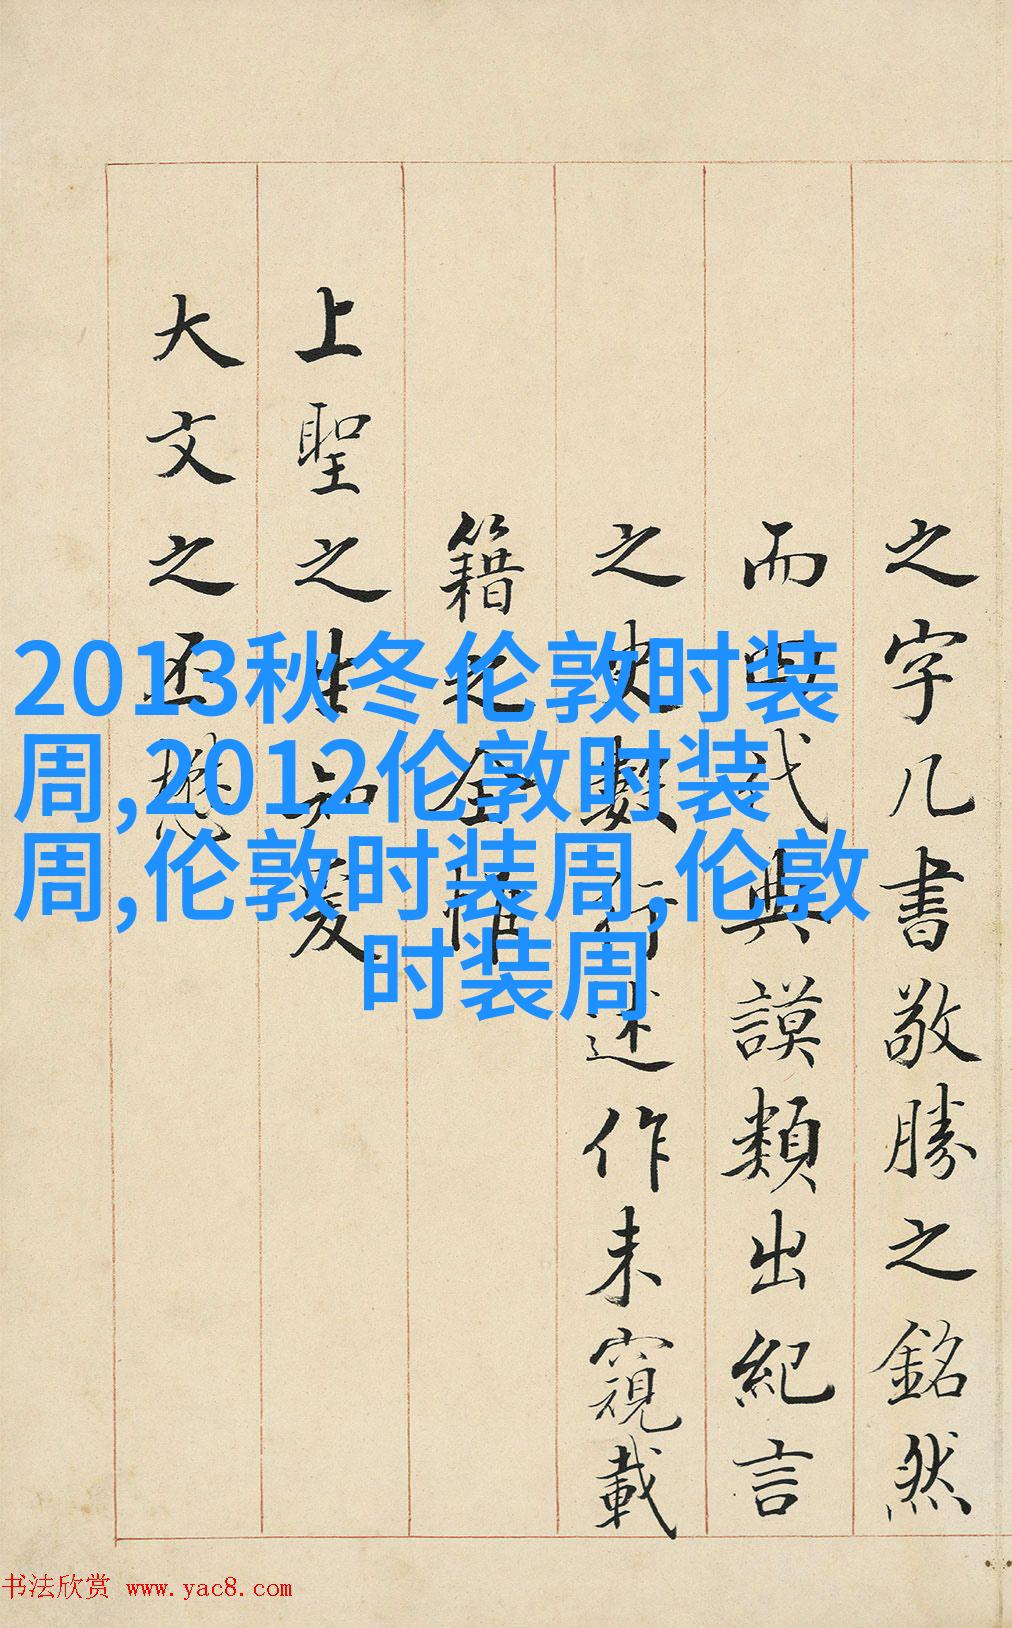 2013秋冬伦敦时装
周,2012伦敦时装
周,伦敦时装周,伦敦
时装周
之字几書敬勝之銘然
而代典謨類出紀言
之史數行述作未窺載
籍之全惟
上聖之生知
大文之丕
书法欣赏 www.yac8.com